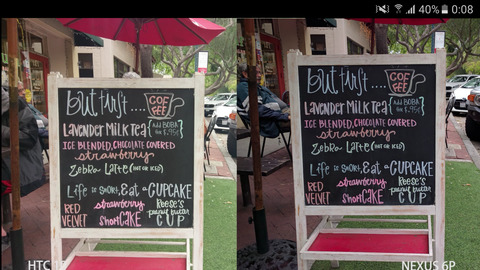 40% 0:08
but first.... COFFEE
LAVENDER MILK TEA {Add BOBA for $.95¢}
ICE BLENDED, CHOCOLATE COVERED
strawberry
Zebra Latte (HOT OR ICED)
Life is short, Eat a CUPCAKE
RED VELVET
strawberry shortCAKE
Reese's peanut butter CUP
HTC 10
but first.... COFFEE
LAVENDER MILK TEA {Add BOBA for $.95¢}
ICE BLENDED, CHOCOLATE COVERED
strawberry
Zebra Latte (HOT OR ICED)
Life is short, Eat a CUPCAKE
RED VELVET
strawberry shortCAKE
Reese's peanut butter CUP
NEXUS 6P